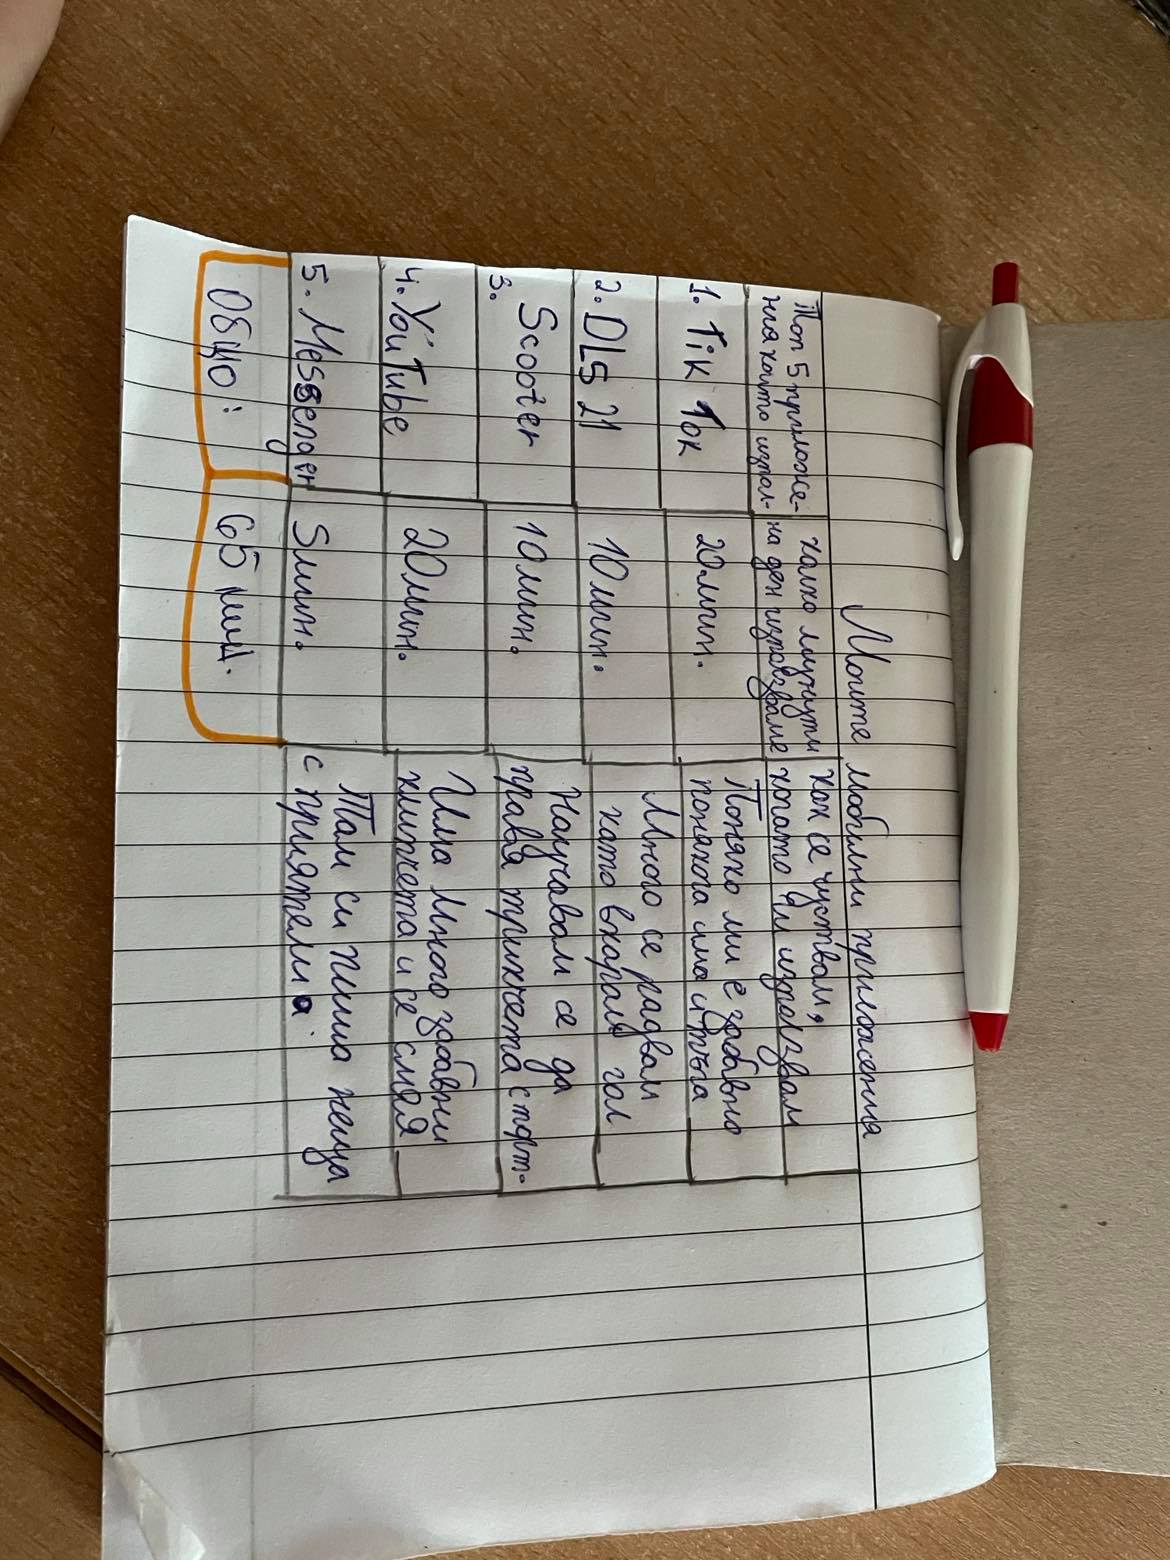 Моите мобилни приложения
Топ 5 приложе-
ния които изпол-
колко минути
на ден използваме
как се чуствам,
когато ги използвам
1. Tik Tok
20мин.
Понякo ми е забавно
понякога има и тъпа
2. DLS 21
10мин.
Много се радвам
като вкарам гол
3. Scooter
10мин.
Научавам се да
правя трикчета с трот.
4. YouTube
20мин.
Има много забавни
клипчета и се смея
5. Messenger
5мин.
Там си пиша неща
с приятели.
Общо:
65 мин.